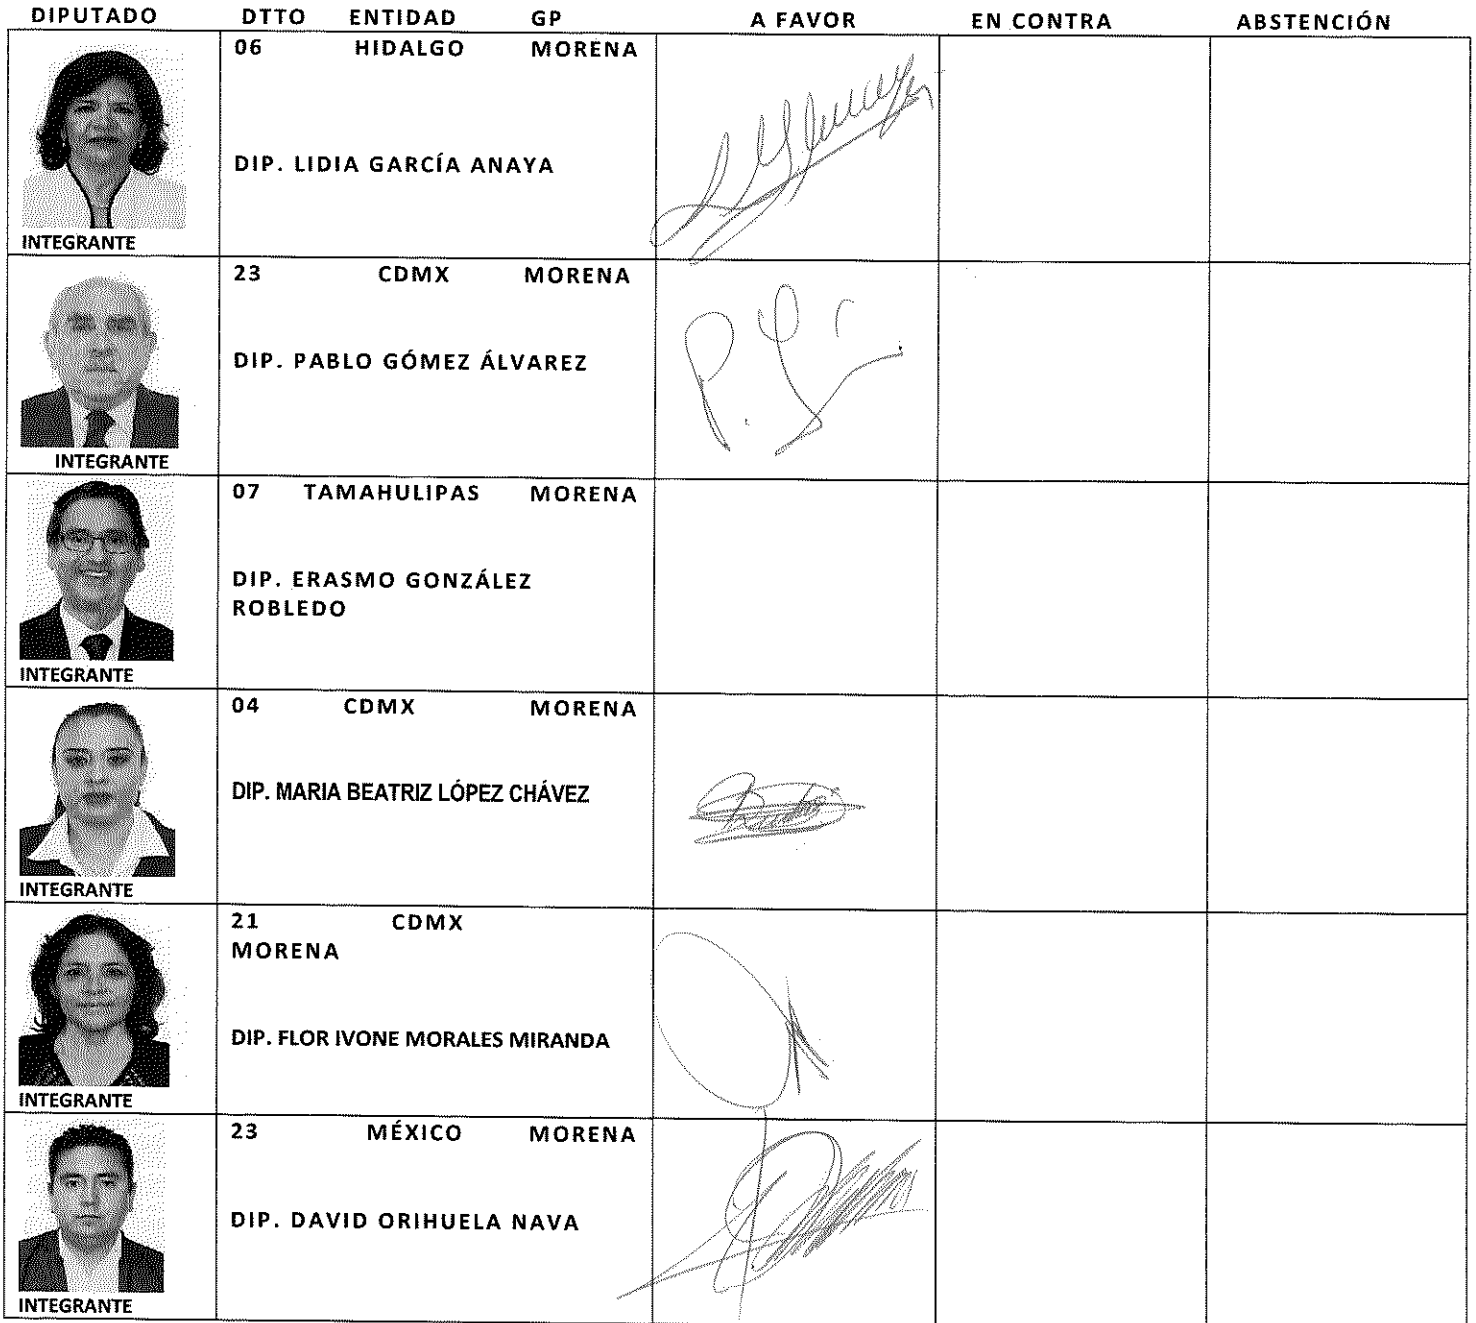 DIPUTADO DTTO ENTIDAD GP A FAVOR EN CONTRA ABSTENCIÓN
06 HIDALGO MORENA
DIP. LIDIA GARCÍA ANAYA
INTEGRANTE
23 CDMX MORENA
DIP. PABLO GÓMEZ ÁLVAREZ
INTEGRANTE
07 TAMAHULIPAS MORENA
DIP. ERASMO GONZÁLEZ
ROBLEDO
INTEGRANTE
04 CDMX MORENA
DIP. MARIA BEATRIZ LÓPEZ CHÁVEZ
INTEGRANTE
21 CDMX
MORENA
DIP. FLOR IVONE MORALES MIRANDA
INTEGRANTE
23 MÉXICO MORENA
DIP. DAVID ORIHUELA NAVA
INTEGRANTE